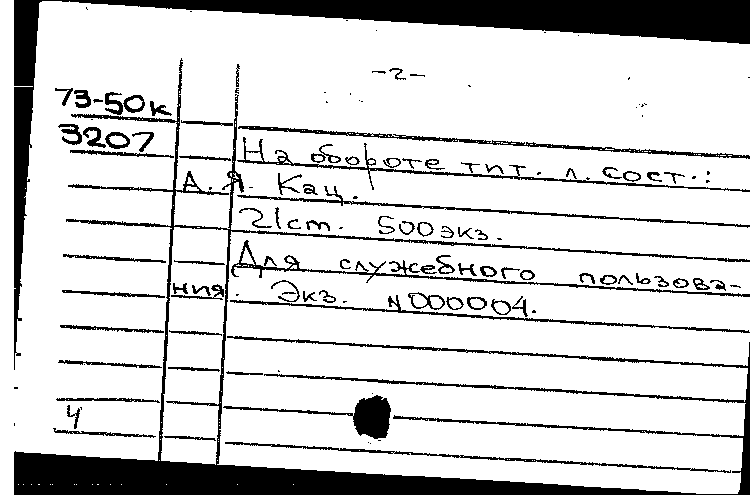 -2-
73-50к
3207
На обороте тит. л. сост.:
А. Я. Кац.
21см. 500экз.
Для служебного пользова-
ния. Экз. №000004.
4